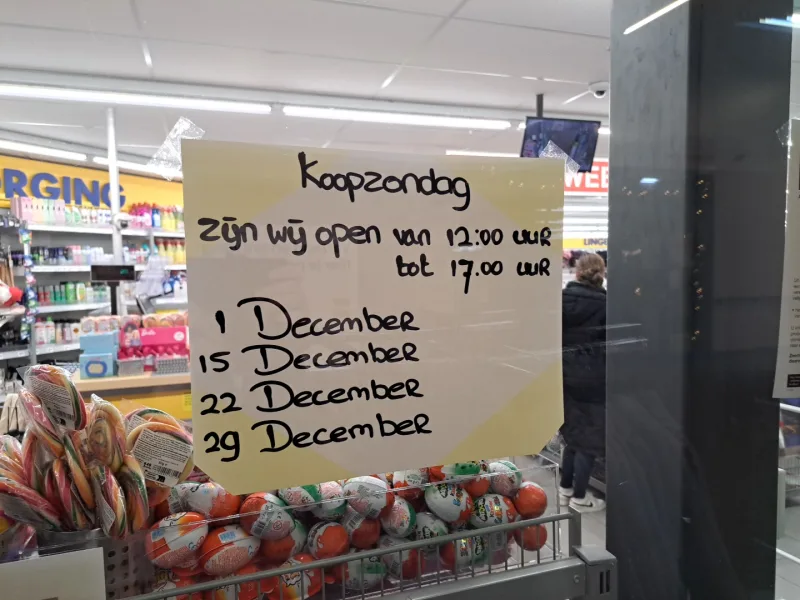 Koopzondag
zijn wij open van 12:00 uur
tot 17.00 uur
1 December
15 December
22 December
29 December
ORGING
WEE
LINGE